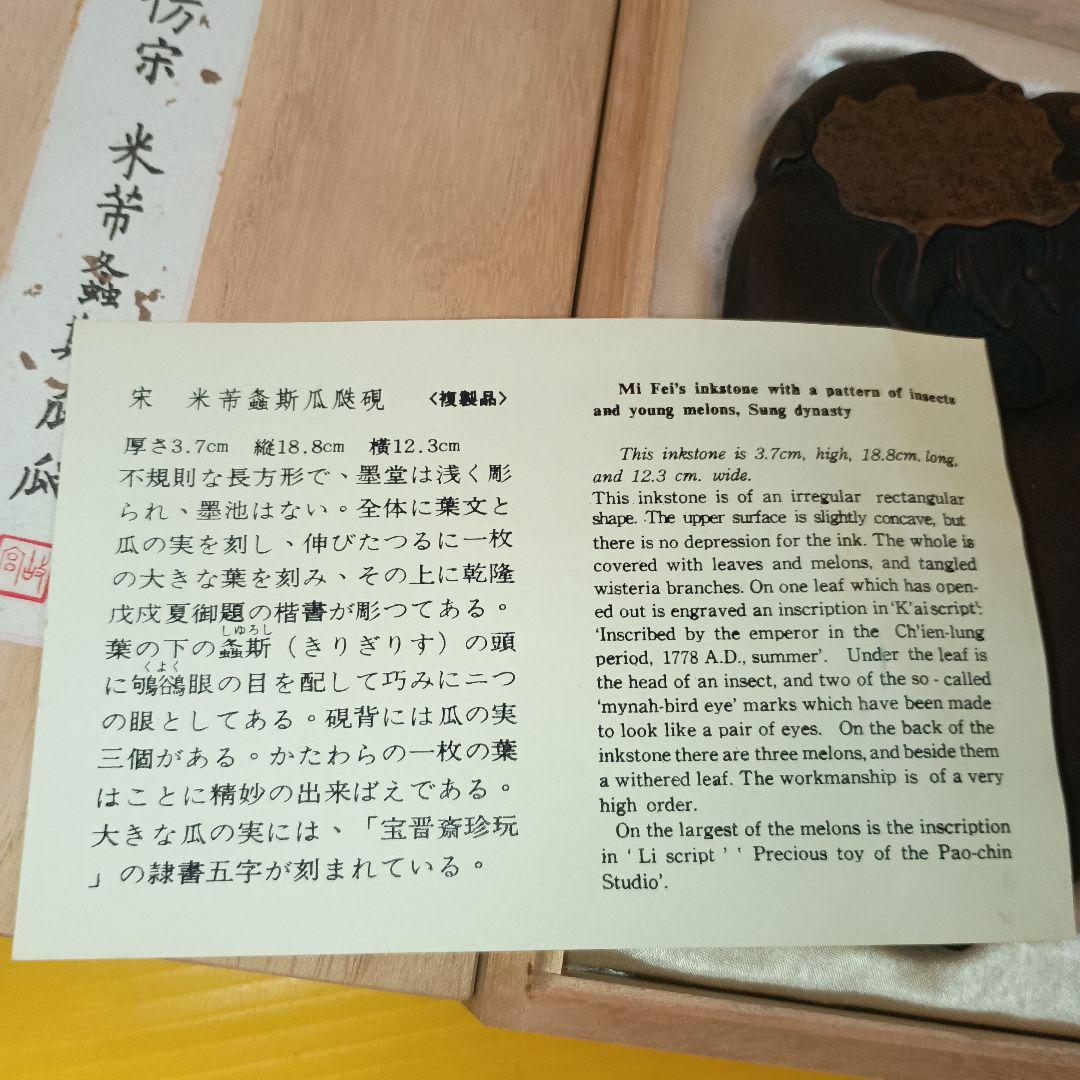 仿宋 米芾螽斯瓜瓞
宋 米芾螽斯瓜瓞硯 〈複製品〉
厚さ3.7cm 縦18.8cm 横12.3cm
不規則な長方形で、墨堂は浅く彫
られ、墨池はない。全体に葉文と
瓜の実を刻し、伸びたつるに一枚
の大きな葉を刻み、その上に乾隆
戊戍夏御題の楷書が彫つてある。
しゆろし
葉の下の螽斯（きりぎりす）の頭
くよく
に鴝鵒眼の目を配して巧みに二つ
の眼としてある。硯背には瓜の実
三個がある。かたわらの一枚の葉
はことに精妙の出来ばえである。
大きな瓜の実には、「宝晋斎珍玩
」の隷書五字が刻まれている。
Mi Fei's inkstone with a pattern of insects
and young melons, Sung dynasty
This inkstone is 3.7cm, high, 18.8cm. long,
and 12.3 cm. wide.
This inkstone is of an irregular rectangular
shape. The upper surface is slightly concave, but
there is no depression for the ink. The whole is
covered with leaves and melons, and tangled
wisteria branches. On one leaf which has open-
ed out is engraved an inscription in 'K'ai script':
'Inscribed by the emperor in the Ch'ien-lung
period, 1778 A.D., summer'. Under the leaf is
the head of an insect, and two of the so-called
'mynah-bird eye' marks which have been made
to look like a pair of eyes. On the back of the
inkstone there are three melons, and beside them
a withered leaf. The workmanship is of a very
high order.
On the largest of the melons is the inscription
in ' Li script ' ‘ Precious toy of the Pao-chin
Studio'.